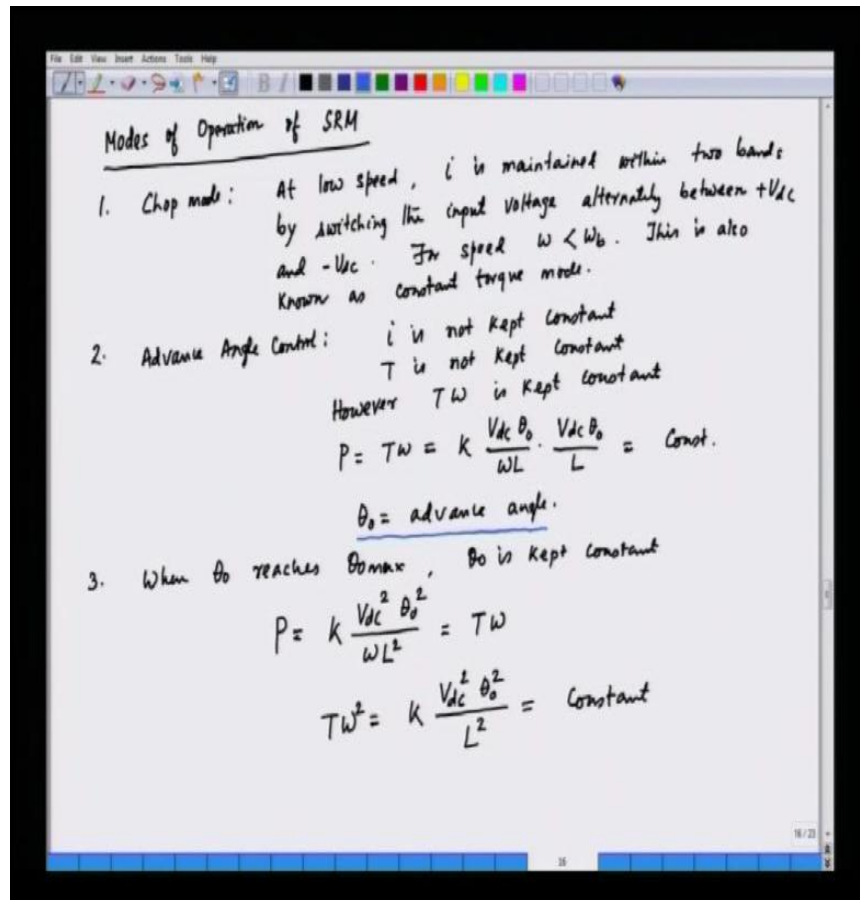 File Edit View Insert Actions Tools Help
Modes of Operation of SRM
1. Chop mode: At low speed, i is maintained within two bands
by switching the input voltage alternately between +Vdc
and -Vdc. For speed ω < ωb. This is also
known as constant torque mode.
2. Advance Angle Control: i is not kept constant
T is not kept constant
However Tω is kept constant
P = Tω = K Vdc θ₀/ωL · Vdc θ₀/L = Const.
θ₀ = advance angle.
3. When θ₀ reaches θ₀max, θ₀ is kept constant
P = K Vdc² θ₀²/ωL² = Tω
Tω² = K Vdc² θ₀²/L² = Constant
16/23
16